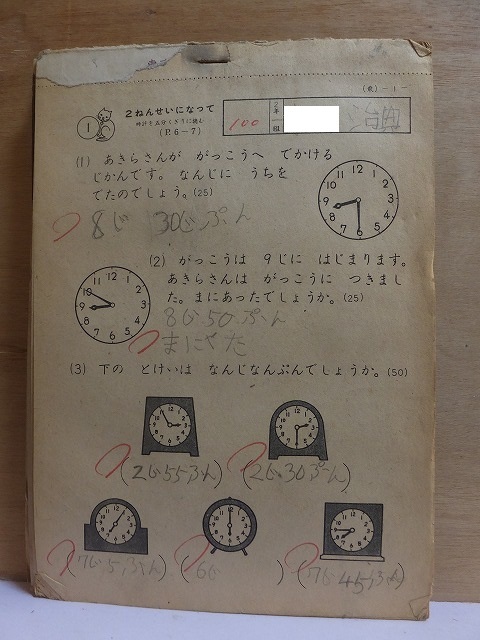 (教)-1-
1
2ねんせいになって
時計を五分くぎりに読む
(P.6-7)
100
2年
一組
(1) あきらさんが がっこうへ でかける
じかんです。 なんじに うちを
でたのでしょう。(25)
8じ 30じぷん
12 1 2 3 4 5 6 7 8 9 10 11
(2) がっこうは 9じに はじまります。
あきらさんは がっこうに つきまし
た。まにあったでしょうか。(25)
12 1 2 3 4 5 6 7 8 9 10 11
8じ50ぷん
まにやた
(3) 下の とけいは なんじなんぷんでしょうか。(50)
(2じ55ふん)
(2じ30ぷん)
(7じ5ふん)
(6じ )
(7じ45ふん)